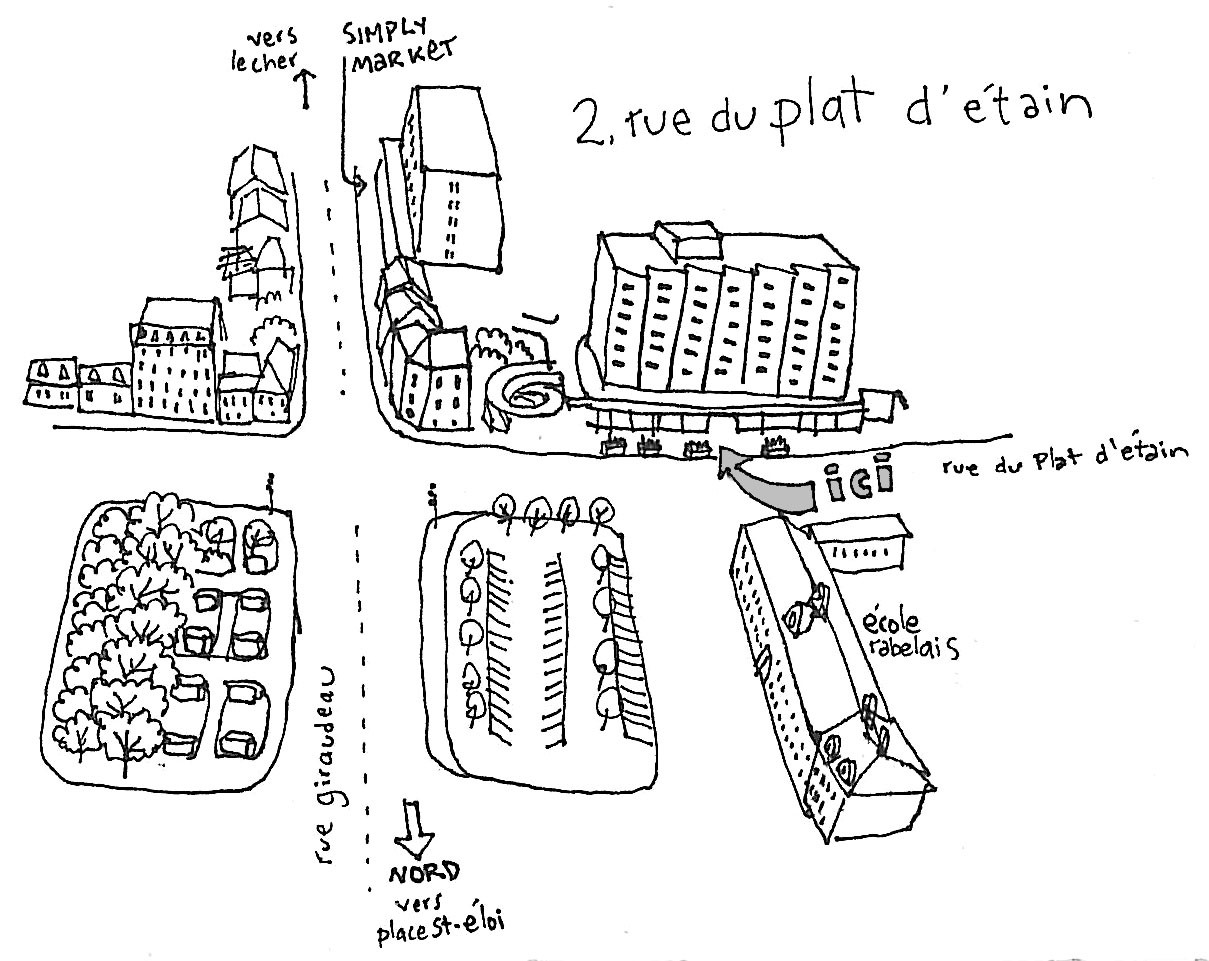 vers
le cher
SIMPLY
MARKET
2, rue du plat d'étain
rue du Plat d'étain
ici
école
rabelais
rue giraudeau
NORD
vers
place St-éloi